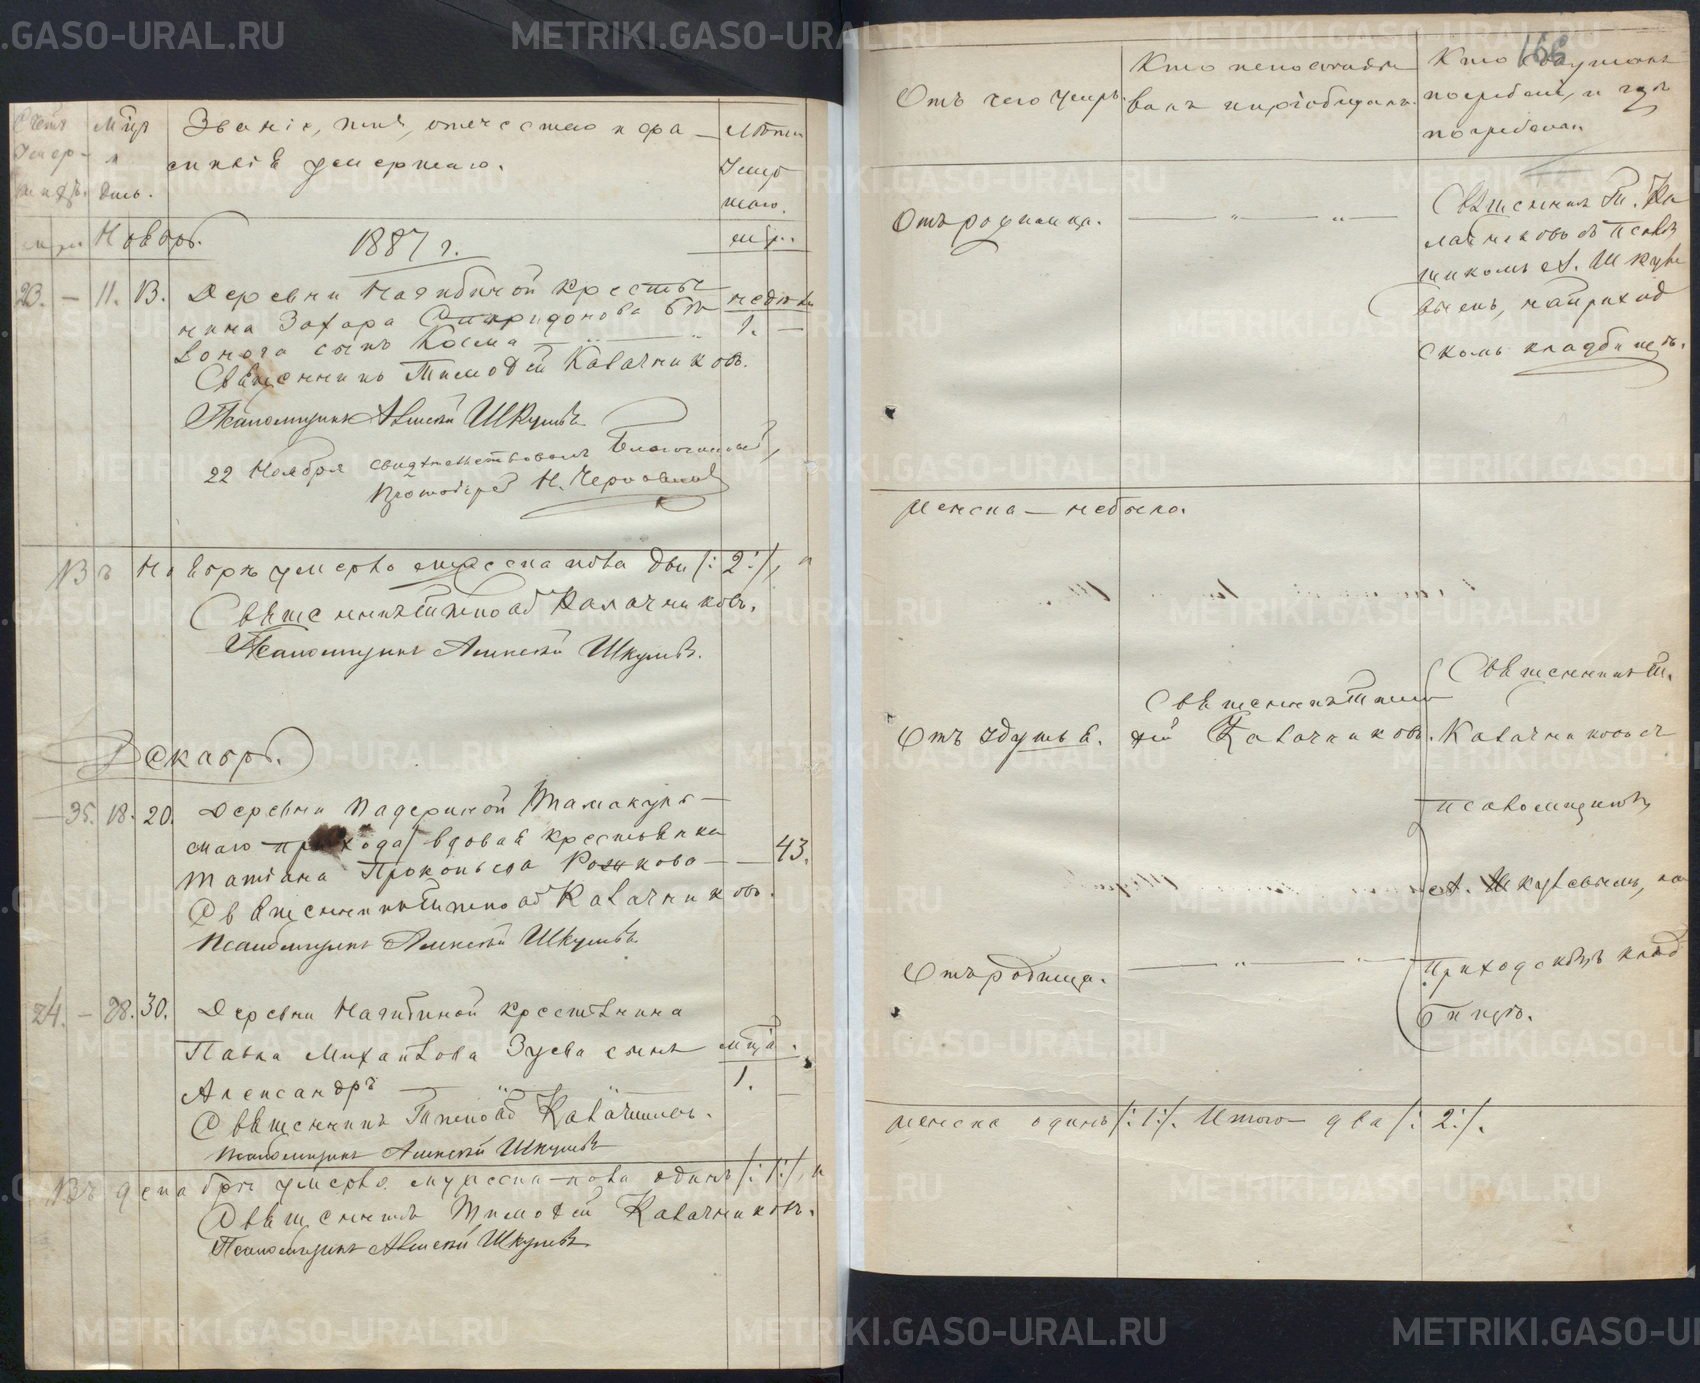 Счетъ Умер-шихъ.
Мцъ и день.
Званіе, имя, отечество и фа-
милія умершаго.
Лѣта Умер шаго.
м.
ж.
Ноябрь.
1887 г.
м.
ж.
23. — 11. 13. Деревни Нагибиной крестья-
нина Захара Спиридонова
сынъ Косма — „ — „
недѣли
1. —
Священникъ Тимофей Калачниковъ.
Псаломщикъ Алексѣй Шкулевъ
22 Ноября свидѣтельствовалъ Благочинный,
Протоіерей Н.
Въ Ноябрѣ умерло мужеска пола два /: 2 :/, и
Священникъ Тимофей Калачниковъ.
Псаломщикъ Алексѣй Шкулевъ.
Декабрь.
— 35. 18. 20. Деревни Падериной /Тамакуль-
скаго прихода/ вдовая крестьянка
Татіана Прокопьева — — 43.
Священникъ Тимофей Калачниковъ.
Псаломщикъ Алексѣй Шкулевъ
24. — 28. 30. Деревни Нагибиной крестьянина
Павла Михайлова Зуева сынъ
мца.
Александръ — „ — „
1. —
Священникъ Тимофей Калачниковъ.
Псаломщикъ Алексѣй Шкулевъ
Въ декабрѣ умерло мужеска пола одинъ /: 1 :/, и
Священникъ Тимофей Калачниковъ.
Псаломщикъ Алексѣй Шкулевъ
166
Отъ чего умеръ.
Кто исповѣды-
валъ и пріобщалъ.
Кто совершалъ
погребеніе, и гдѣ
погребены.
Отъ родимца. — „ — „ —
Священникъ Т. Ка
лачниковъ съ псалом
щикомъ А. Шкуле
вымъ, на приход
скомъ кладбищѣ.
женска — не было.
Отъ удушья.
Священникъ Тимо
фей Калачниковъ.
Священникъ Т.
Калачниковъ съ
псаломщикомъ
А. Шкулевымъ, на
приходскомъ клад
бищѣ.
Отъ родимца. — „ — „ —
женска одинъ /: 1 :/. Итого — два /: 2 :/.
METRIKI.GASO-URAL.RU